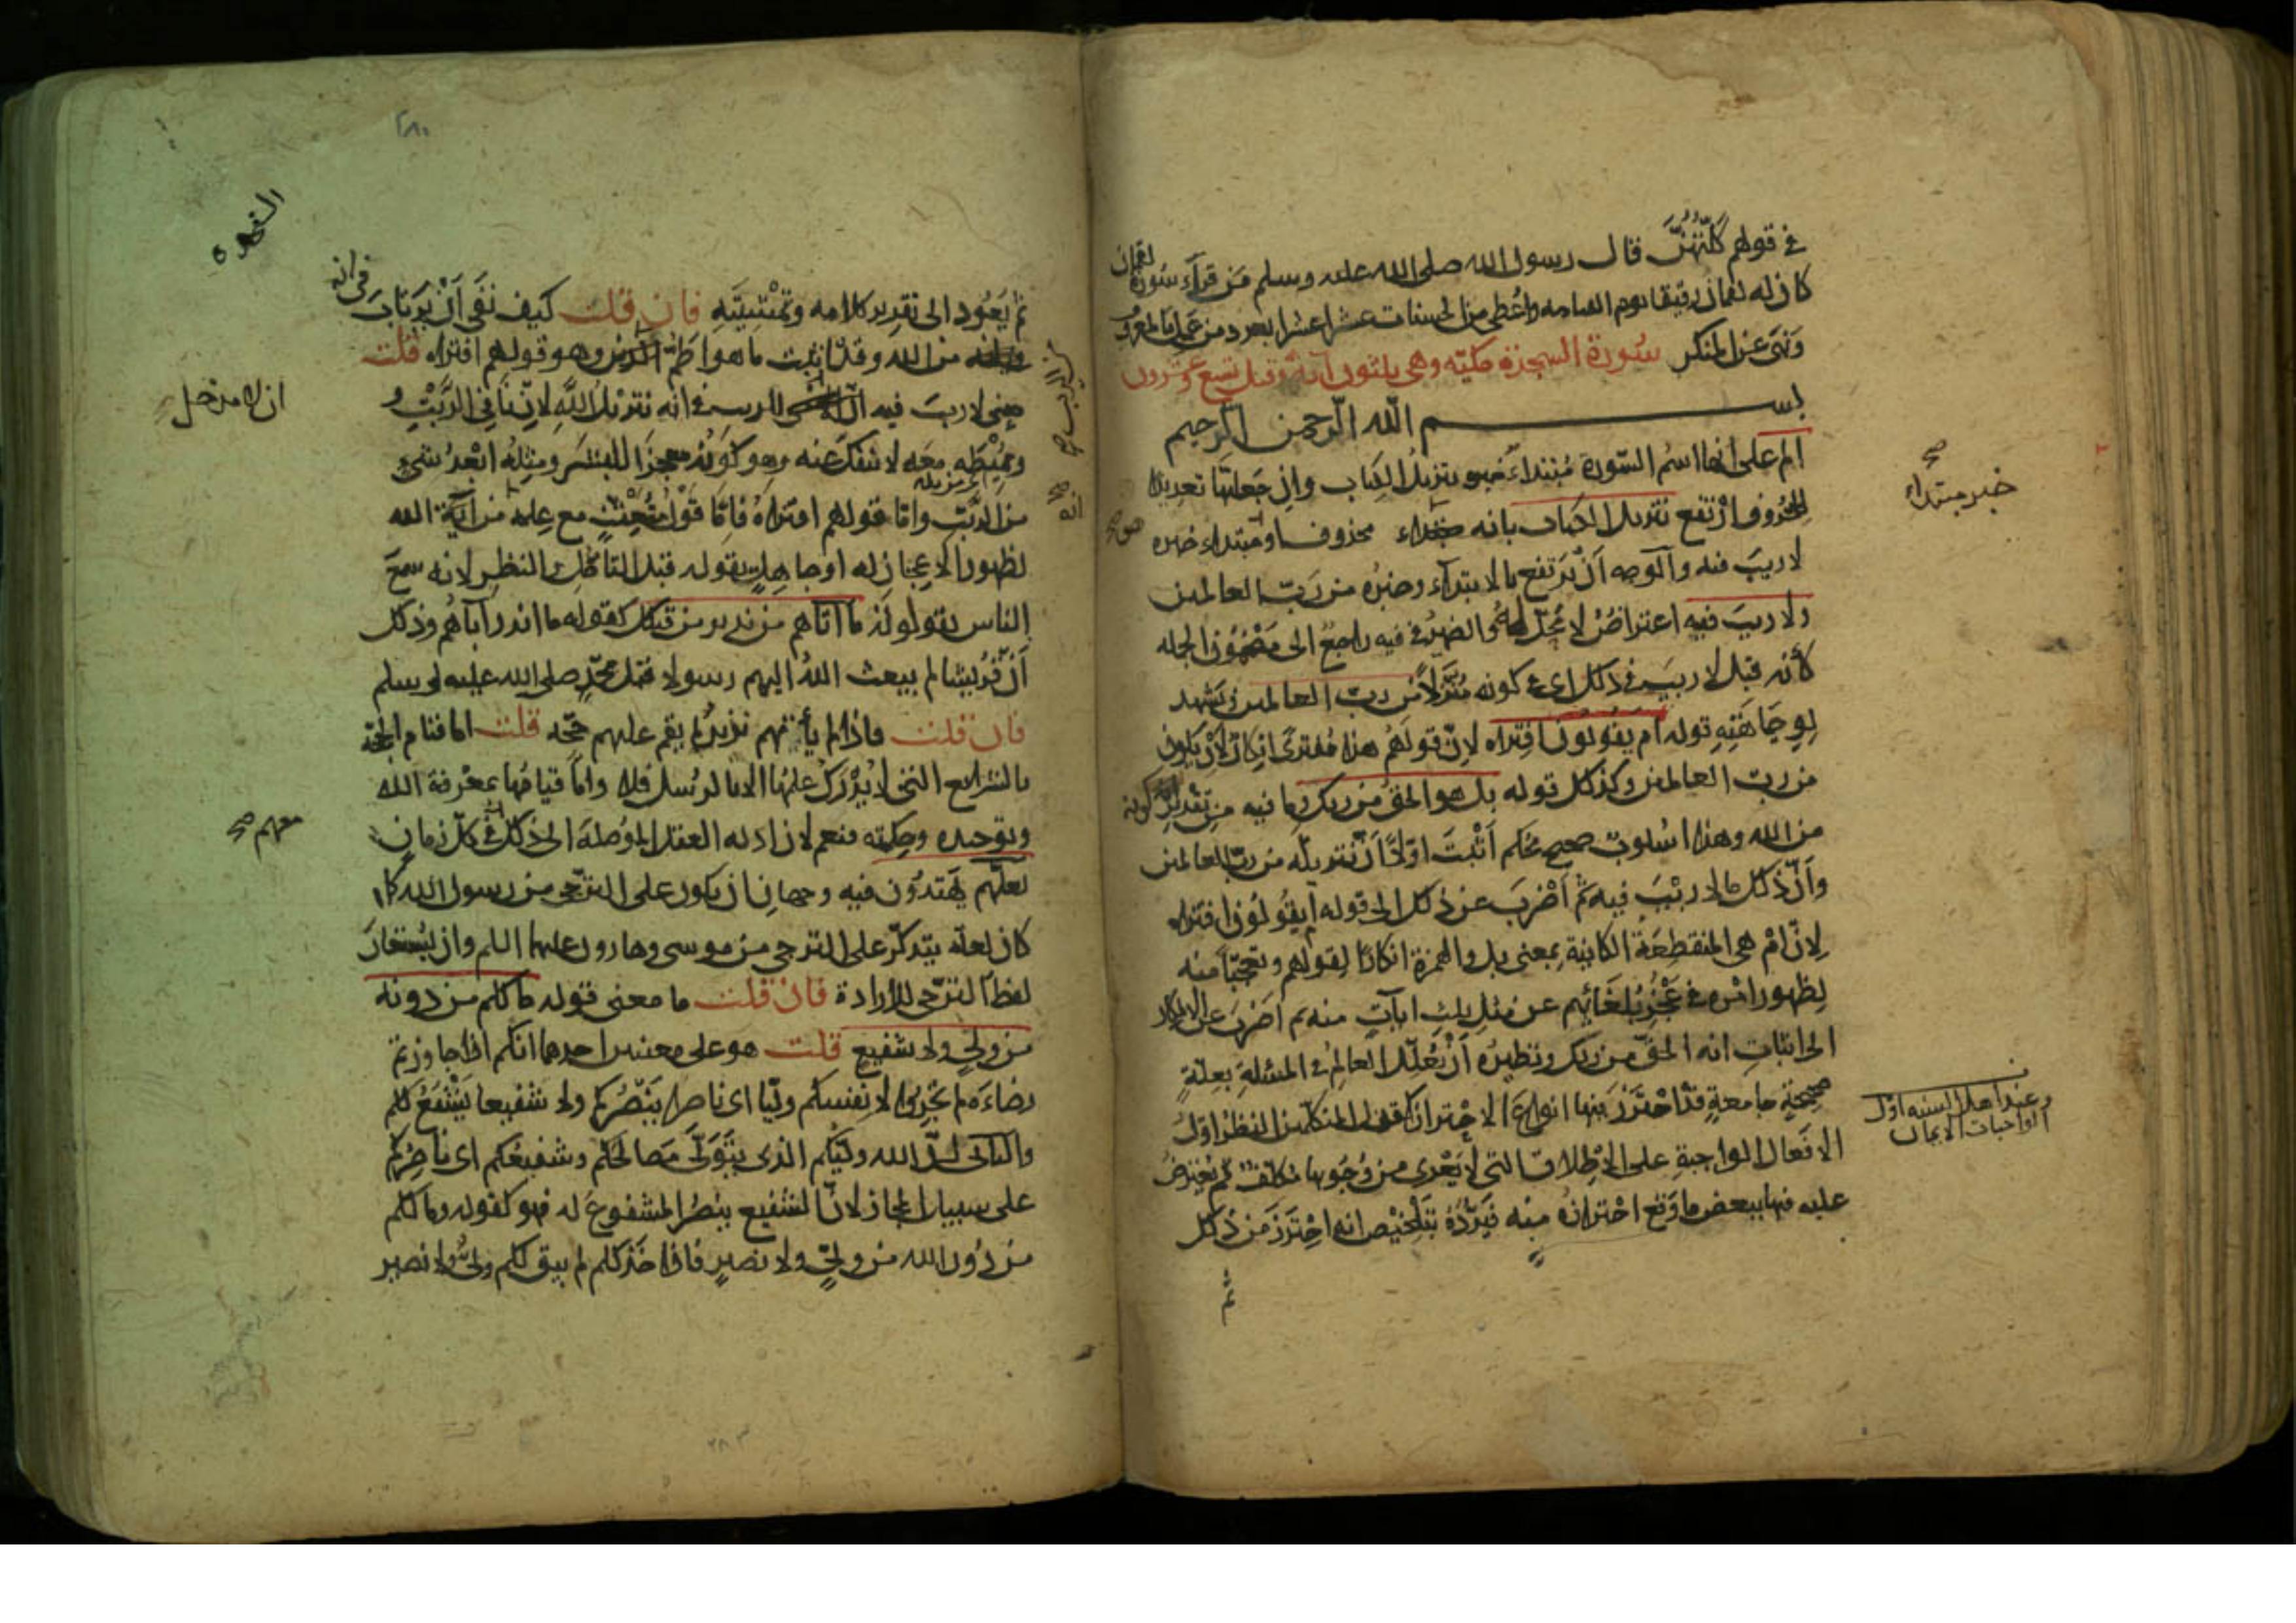 في قولهم كلّتهنّ قال رسول الله صلى الله عليه وسلم من قرأ سورة لقمان
كان له لقمان رفيقا يوم القيامه واعطي من الحسنات عشرا عشرا بعدد من عمل بالمعروف
ونهى عن المنكر سورة السجدة مكيّه وهي ثلثون آية وقيل تسع وعشرون
بسم الله الرحمن الرحيم
الم على انها اسم السّورة مبتداء خبره تنزيل الكتاب وان جعلتها تعديدا
للحروف ارتفع تنزيل الكتاب بانه محذوف او مبتداء خبره
لا ريب فيه والوجه أن يرتفع بالابتداء وخبره من ربّ العالمين
ولا ريب فيه اعتراض لا محلّ له والضمير في فيه راجع الى مضمون الجمله
كأنه قيل لا ريب في ذلك اي في كونه منزّلا من رب العالمين ويشهد
لوجاهته قوله ام يقولون افتراه لانّ قولهم هذا مفترى انكار لان يكون
من رب العالمين وكذلك قوله بل هو الحق من ربك وما فيه من تقدير كونه
من الله وهذا اسلوب صحيح محكم أثبت اوّلا أنّ تنزيله من ربّ العالمين
وأنّ ذلك ما لا ريب فيه ثم أضرب عن ذلك الى قوله أم يقولون افتراه
لانّ ام هي المنقطعة الكائنة بمعنى بل والهمزة انكارا لقولهم وتعجّبا منه
لظهور امره في عجز بلغائهم عن مثل ثلث آيات منه ثم اضرب عن الانكار
الى اثبات انه الحقّ من ربك ونظيره أن يعلّل العالم في المسئلة بعلّة
صحيحة جامعة قد احترز فيها انواع الاحتراز كقول المتكلّمين النظر اوّل
الافعال الواجبة على الاطلاق التي لا يعرى من وجوبها مكلّف ثم يعترض
عليه فيها ببعض ما وقع احترازه منه فيردّه بتلخيص انه احترز من ذلك
ثم
خبر مبتداء
صح
هو صح
وعند اهل السنه اول
الواجبات الايمان
٢٨٠
السجده
ثم يعود الى تقرير كلامه وتمشيته فان قلت كيف نفى أن يرتاب في انه
من الله وقد اثبت ما هو اطمّ من الريب وهو قولهم افتراه قلت
معنى لا ريب فيه ان لا مدخل للريب في انه تنزيل الله لانّ نافي الرّيب و
مميطه معه لا ينفك عنه وهو كونه معجزا للبشر ومثله ابعد شيء
من الرّيب وامّا قولهم افتراه فامّا قول متعنّت مع علمه انه من الله
لظهور الاعجاز له او جاهل يقوله قبل التأمّل والنظر لانه سمع
الناس يقولونه ما أتاهم من نذير من قبلك كقوله ما انذر آباؤهم وذلك
أنّ قريشا لم يبعث الله اليهم رسولا قبل محمّد صلى الله عليه وسلم
فان قلت فاذا لم يأتهم نذير لم يقم عليهم حجّه قلت امّا قيام الحجّة
بالشرايع التي لا يدرك علمها الا بالرسل فلا وامّا قيامها بمعرفة الله
وتوحيده وحكمته فنعم لان ادله العقل الموصلة الى ذلك معهم في كل زمان
لعلّهم يهتدون فيه وجهان ان يكون على الترجّي من رسول الله كما
كان لعلّه يتذكّر على الترجي من موسى وهارون عليهما السلم وان يستعار
لفظ الترجّي للارادة فان قلت ما معنى قوله ما لكم من دونه
من وليّ ولا شفيع قلت هو على معنيين احدهما انكم اذا جاوزتم
رضاءه لم تجدوا لانفسكم وليّا اى ناصرا ينصركم ولا شفيعا يشفع لكم
والثاني انّ الله وليّكم الذي يتولّى مصالحكم وشفيعكم اي ناصركم
على سبيل المجاز لانّ الشفيع ينصر المشفوع له فهو كقوله وما لكم
من دون الله من وليّ ولا نصير فاذا خذلكم لم يبق لكم وليّ ولا نصير
ان لا مدخل
معهم صح